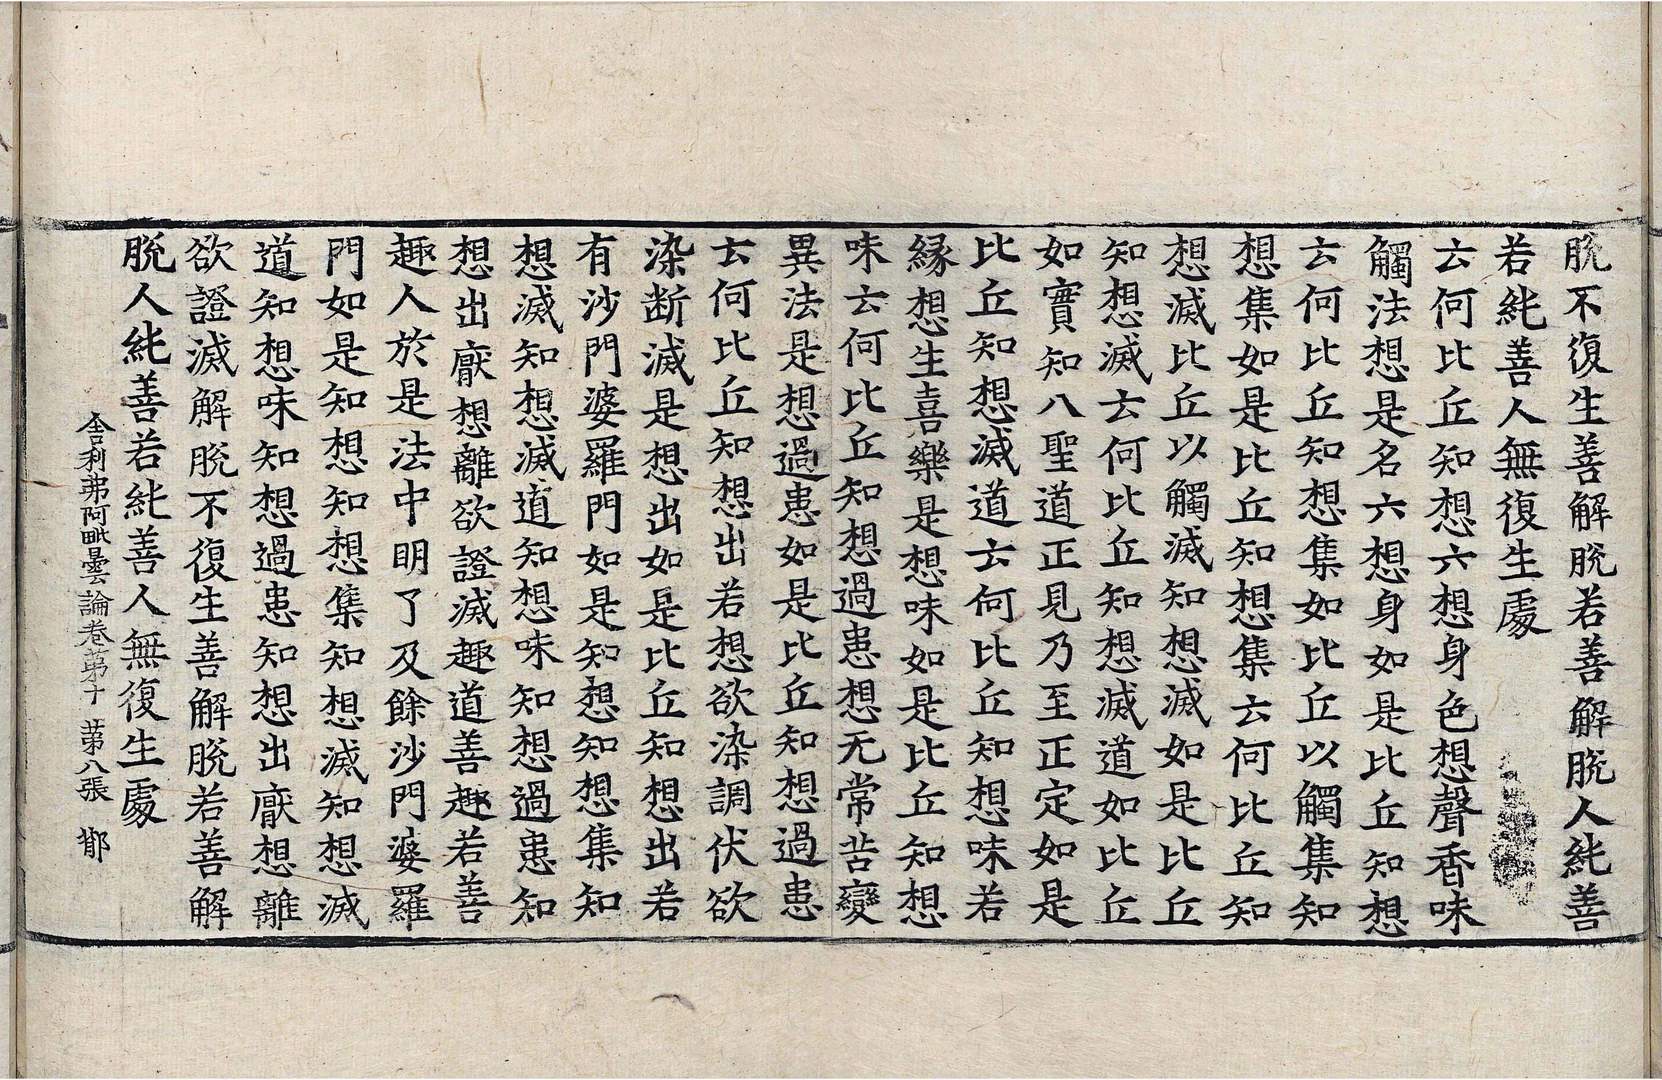 脫不復生善解脫若善解脫人純善
若純善人無復生處
云何比丘知想六想身色想聲香味
觸法想是名六想身如是比丘知想
云何比丘知想集如比丘以觸集知
想集如是比丘知想集云何比丘知
想滅比丘以觸滅知想滅如是比丘
知想滅云何比丘知想滅道如比丘
如實知八聖道正見乃至正定如是
比丘知想滅道云何比丘知想味若
緣想生喜樂是想味如是比丘知想
味云何比丘知想過患想无常苦變
異法是想過患如是比丘知想過患
云何比丘知想出若想欲染調伏欲
染断滅是想出如是比丘知想出若
有沙門婆羅門如是知想知想集知
想滅知想滅道知想味知想過患知
想出厭想離欲證滅趣道善趣若善
趣人於是法中明了及餘沙門婆羅
門如是知想知想集知想滅知想滅
道知想味知想過患知想出厭想離
欲證滅解脫不復生善解脫若善解
脫人純善若純善人無復生處
舍利弗阿毗曇論卷苐十 苐八張 鄁